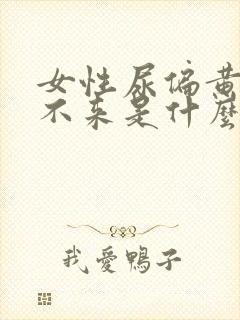 女性尿偏黄
不来是什麼
我愛鴨子